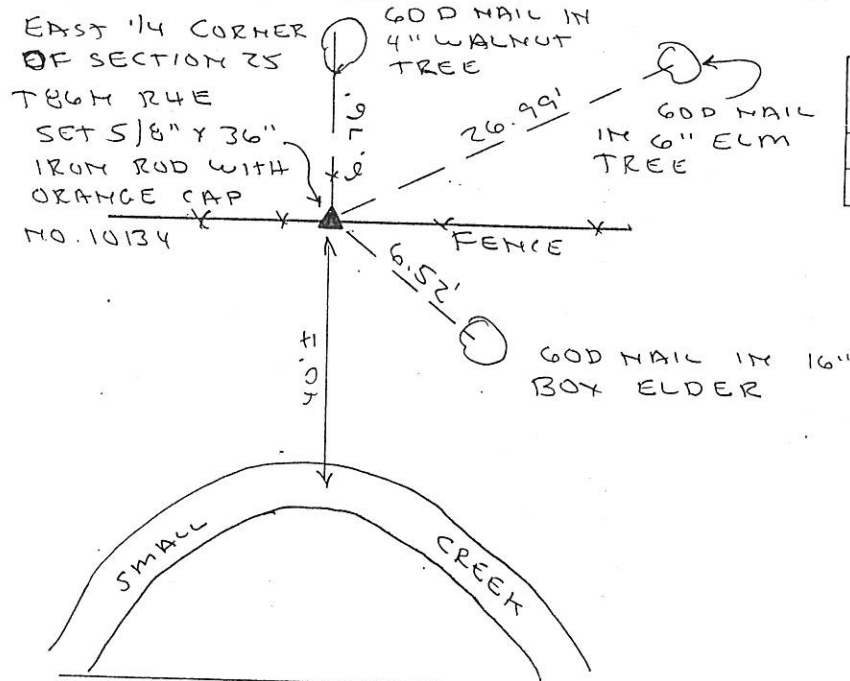 EAST 1/4 CORNER
OF SECTION 25
T86N R4E
SET 5/8" X 36"
IRON ROD WITH
ORANGE CAP
NO. 10134
60D NAIL IN
4" WALNUT
TREE
26.99'
60D NAIL
IN 6" ELM
TREE
FENCE
6.52'
60D NAIL IN 16"
BOX ELDER
40'±
SMALL CREEK